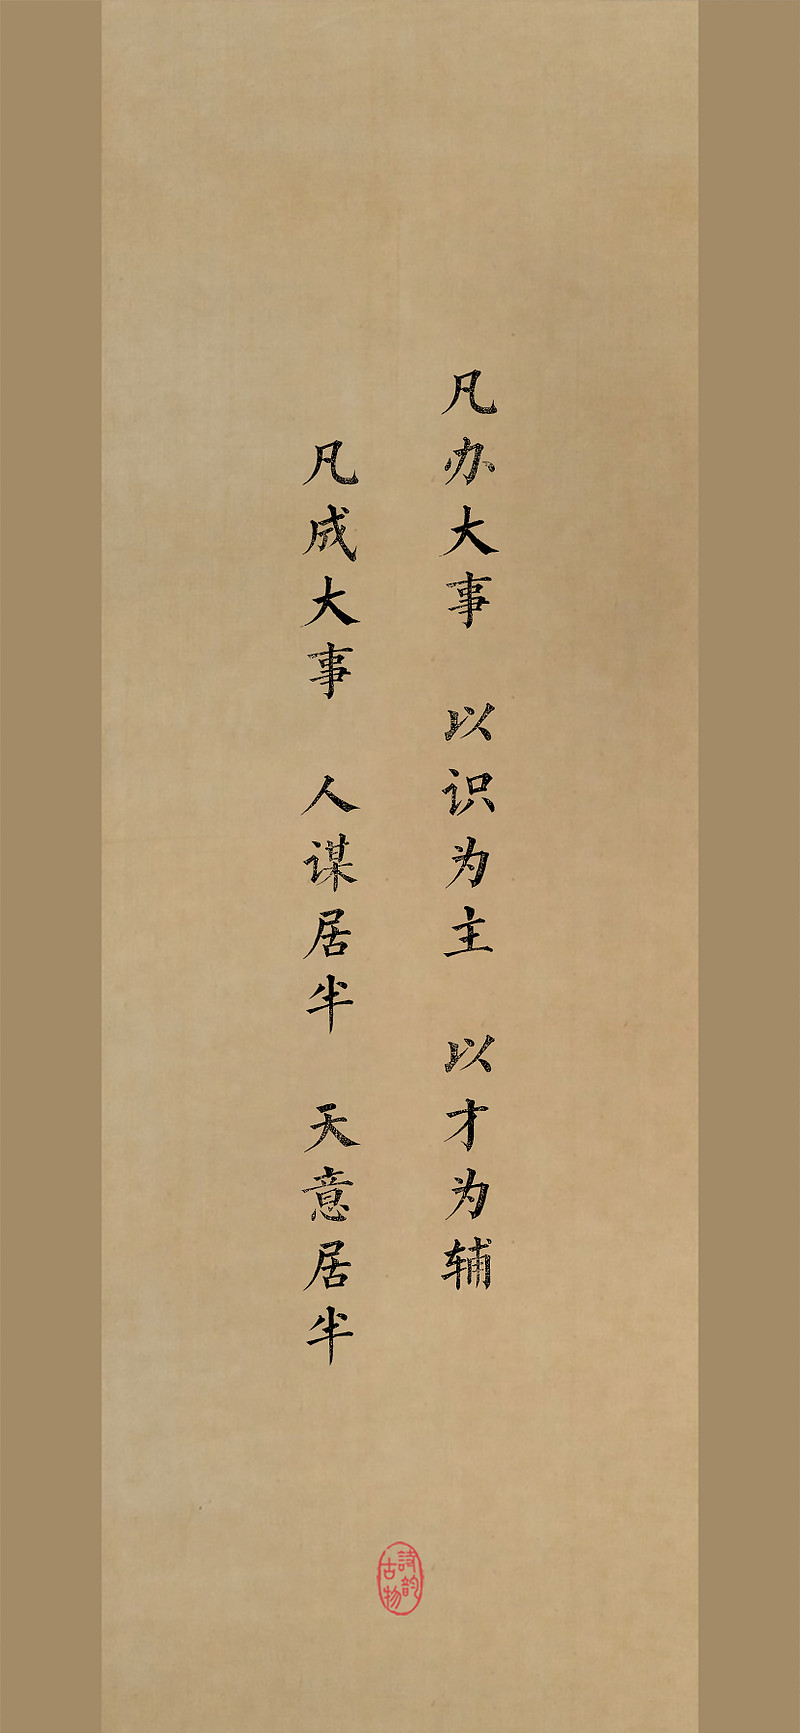 凡办大事 以识为主 以才为辅
凡成大事 人谋居半 天意居半
詩韵
古物